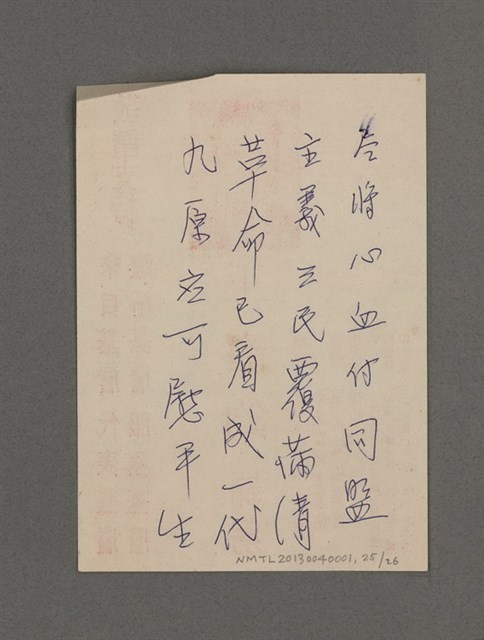 尽將心血付同盟
主義三民覆满清
革命已看成一代
九原应可慰平生
NMTL20130040001, 25/26